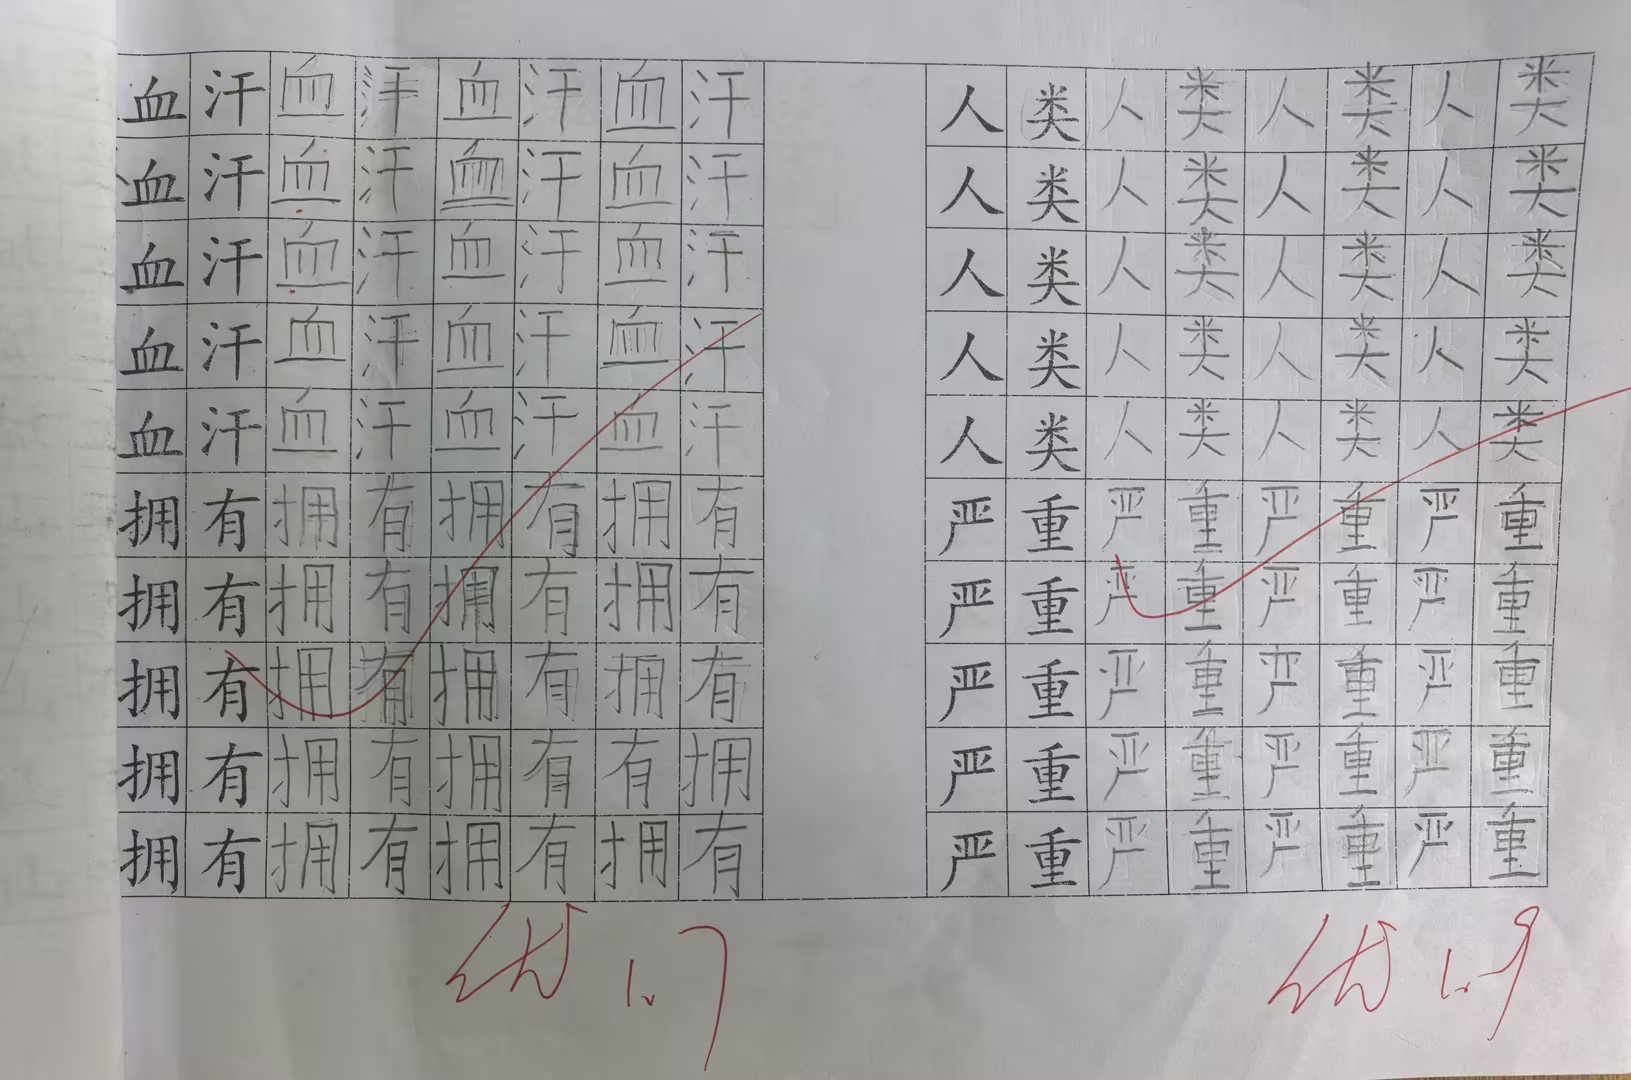 血汗血汗血汗血汗
血汗血汗血汗血汗
血汗血汗血汗血汗
血汗血汗血汗血汗
血汗血汗血汗血汗
拥有拥有拥有拥有
拥有拥有拥有拥有
拥有拥有拥有拥有
拥有拥有拥有有拥
拥有拥有拥有拥有
优 1.7
人类人类人类人类
人类人类人类人类
人类人类人类人类
人类人类人类人类
人类人类人类人类
严重严重严重严重
严重严重严重严重
严重严重严重严重
严重严重严重严重
严重严重严重严重
优 1.9